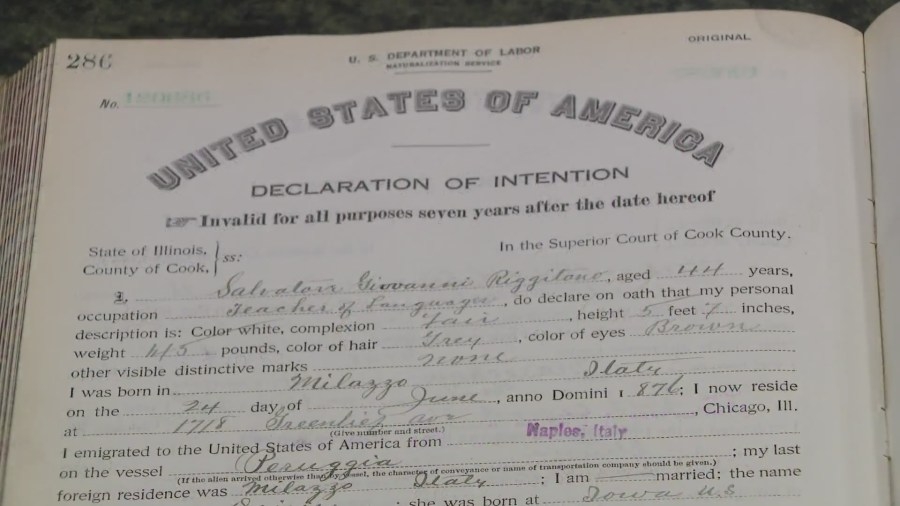 286
ORIGINAL
U. S. DEPARTMENT OF LABOR
NATURALIZATION SERVICE
No.
UNITED STATES OF AMERICA
DECLARATION OF INTENTION
☞ Invalid for all purposes seven years after the date hereof
State of Illinois,
County of Cook, ss:
In the Superior Court of Cook County.
I, Salvatore Giovanni Riggitono, aged 44 years,
occupation Teacher of Languages, do declare on oath that my personal
description is: Color white, complexion Fair, height 5 feet 7 inches,
weight 145 pounds, color of hair Grey, color of eyes Brown
other visible distinctive marks none
I was born in Milazzo Italy
on the 24 day of June, anno Domini 1876; I now reside
at 1718 ave, Chicago, Ill.
(Give number and street.)
I emigrated to the United States of America from Naples, Italy
on the vessel Peruggia; my last
(If the alien arrived otherwise than by vessel, the character of conveyance or name of transportation company should be given.)
foreign residence was Milazzo Italy; I am married; the name
; she was born at Iowa U.S